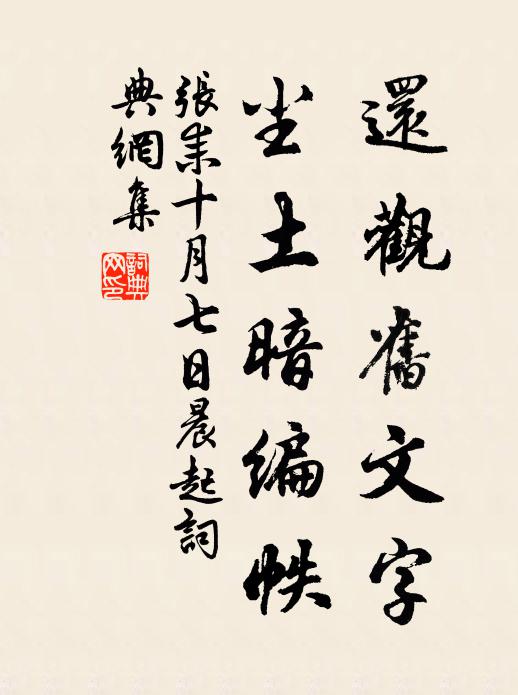 還觀舊文字
尘土暗编帙
張耒十月七日晨起詞
典網集
詞典
网印